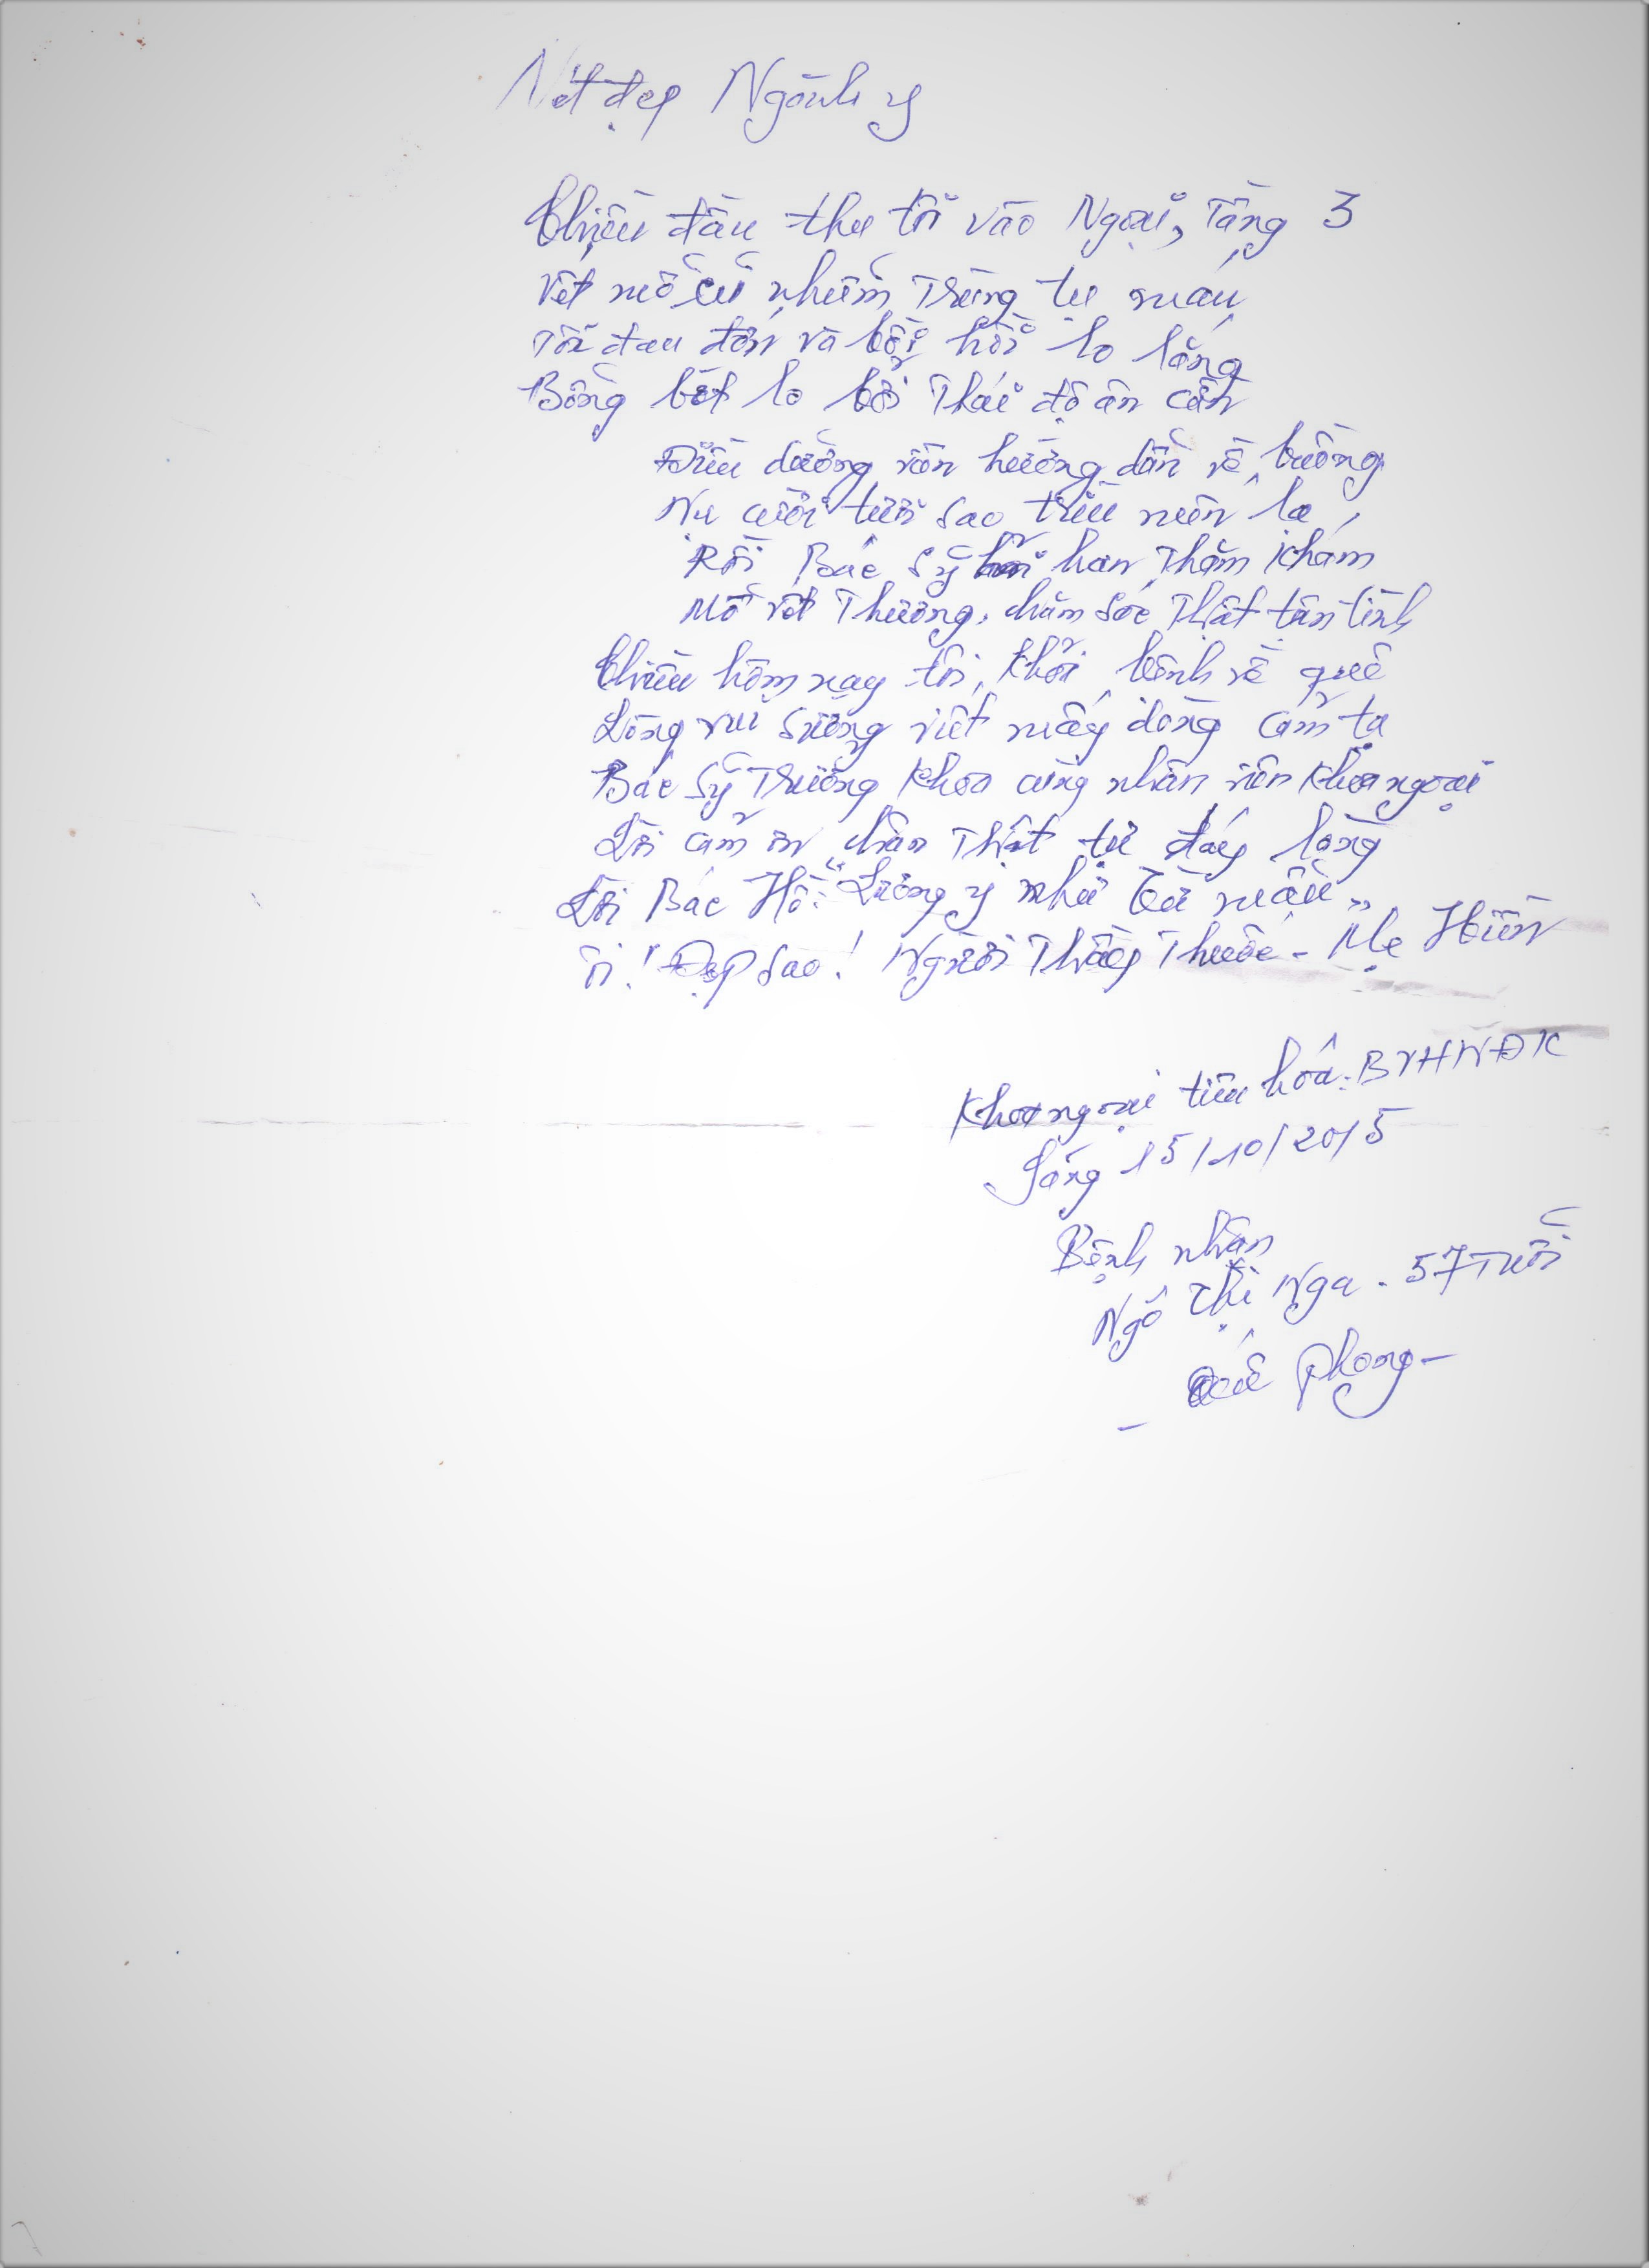 Nét đẹp Ngành y
Chiều đầu thu tôi vào Ngoại, Tầng 3
Vết mổ cũ nhiễm Trùng tụ máu
Tôi đau đớn và bồi hồi lo lắng
Bỗng bớt lo bởi Thái độ ân cần
Điều dưỡng viên hướng dẫn về buồng
Nụ cười tươi sao trìu mến lạ
Rồi Bác Sỹ hỏi han Thăm khám
Mổ vết Thương, chăm sóc Thật tận tình
Chiều hôm nay tôi khỏi bệnh về quê
Lòng vui sướng viết mấy dòng cảm tạ
Bác Sỹ Trưởng Khoa cùng nhân viên Khoa ngoại
Lời cảm ơn chân Thật từ đáy lòng
Lời Bác Hồ: "Lương y như từ mẫu"
Ôi! Đẹp sao! Người Thầy Thuốc - Mẹ Hiền
Khoa ngoại tiêu hóa. BVHNĐK
Sáng 15/10/2015
Bệnh nhân
Ngô Thị Nga - 57 Tuổi
- Quế Phong -